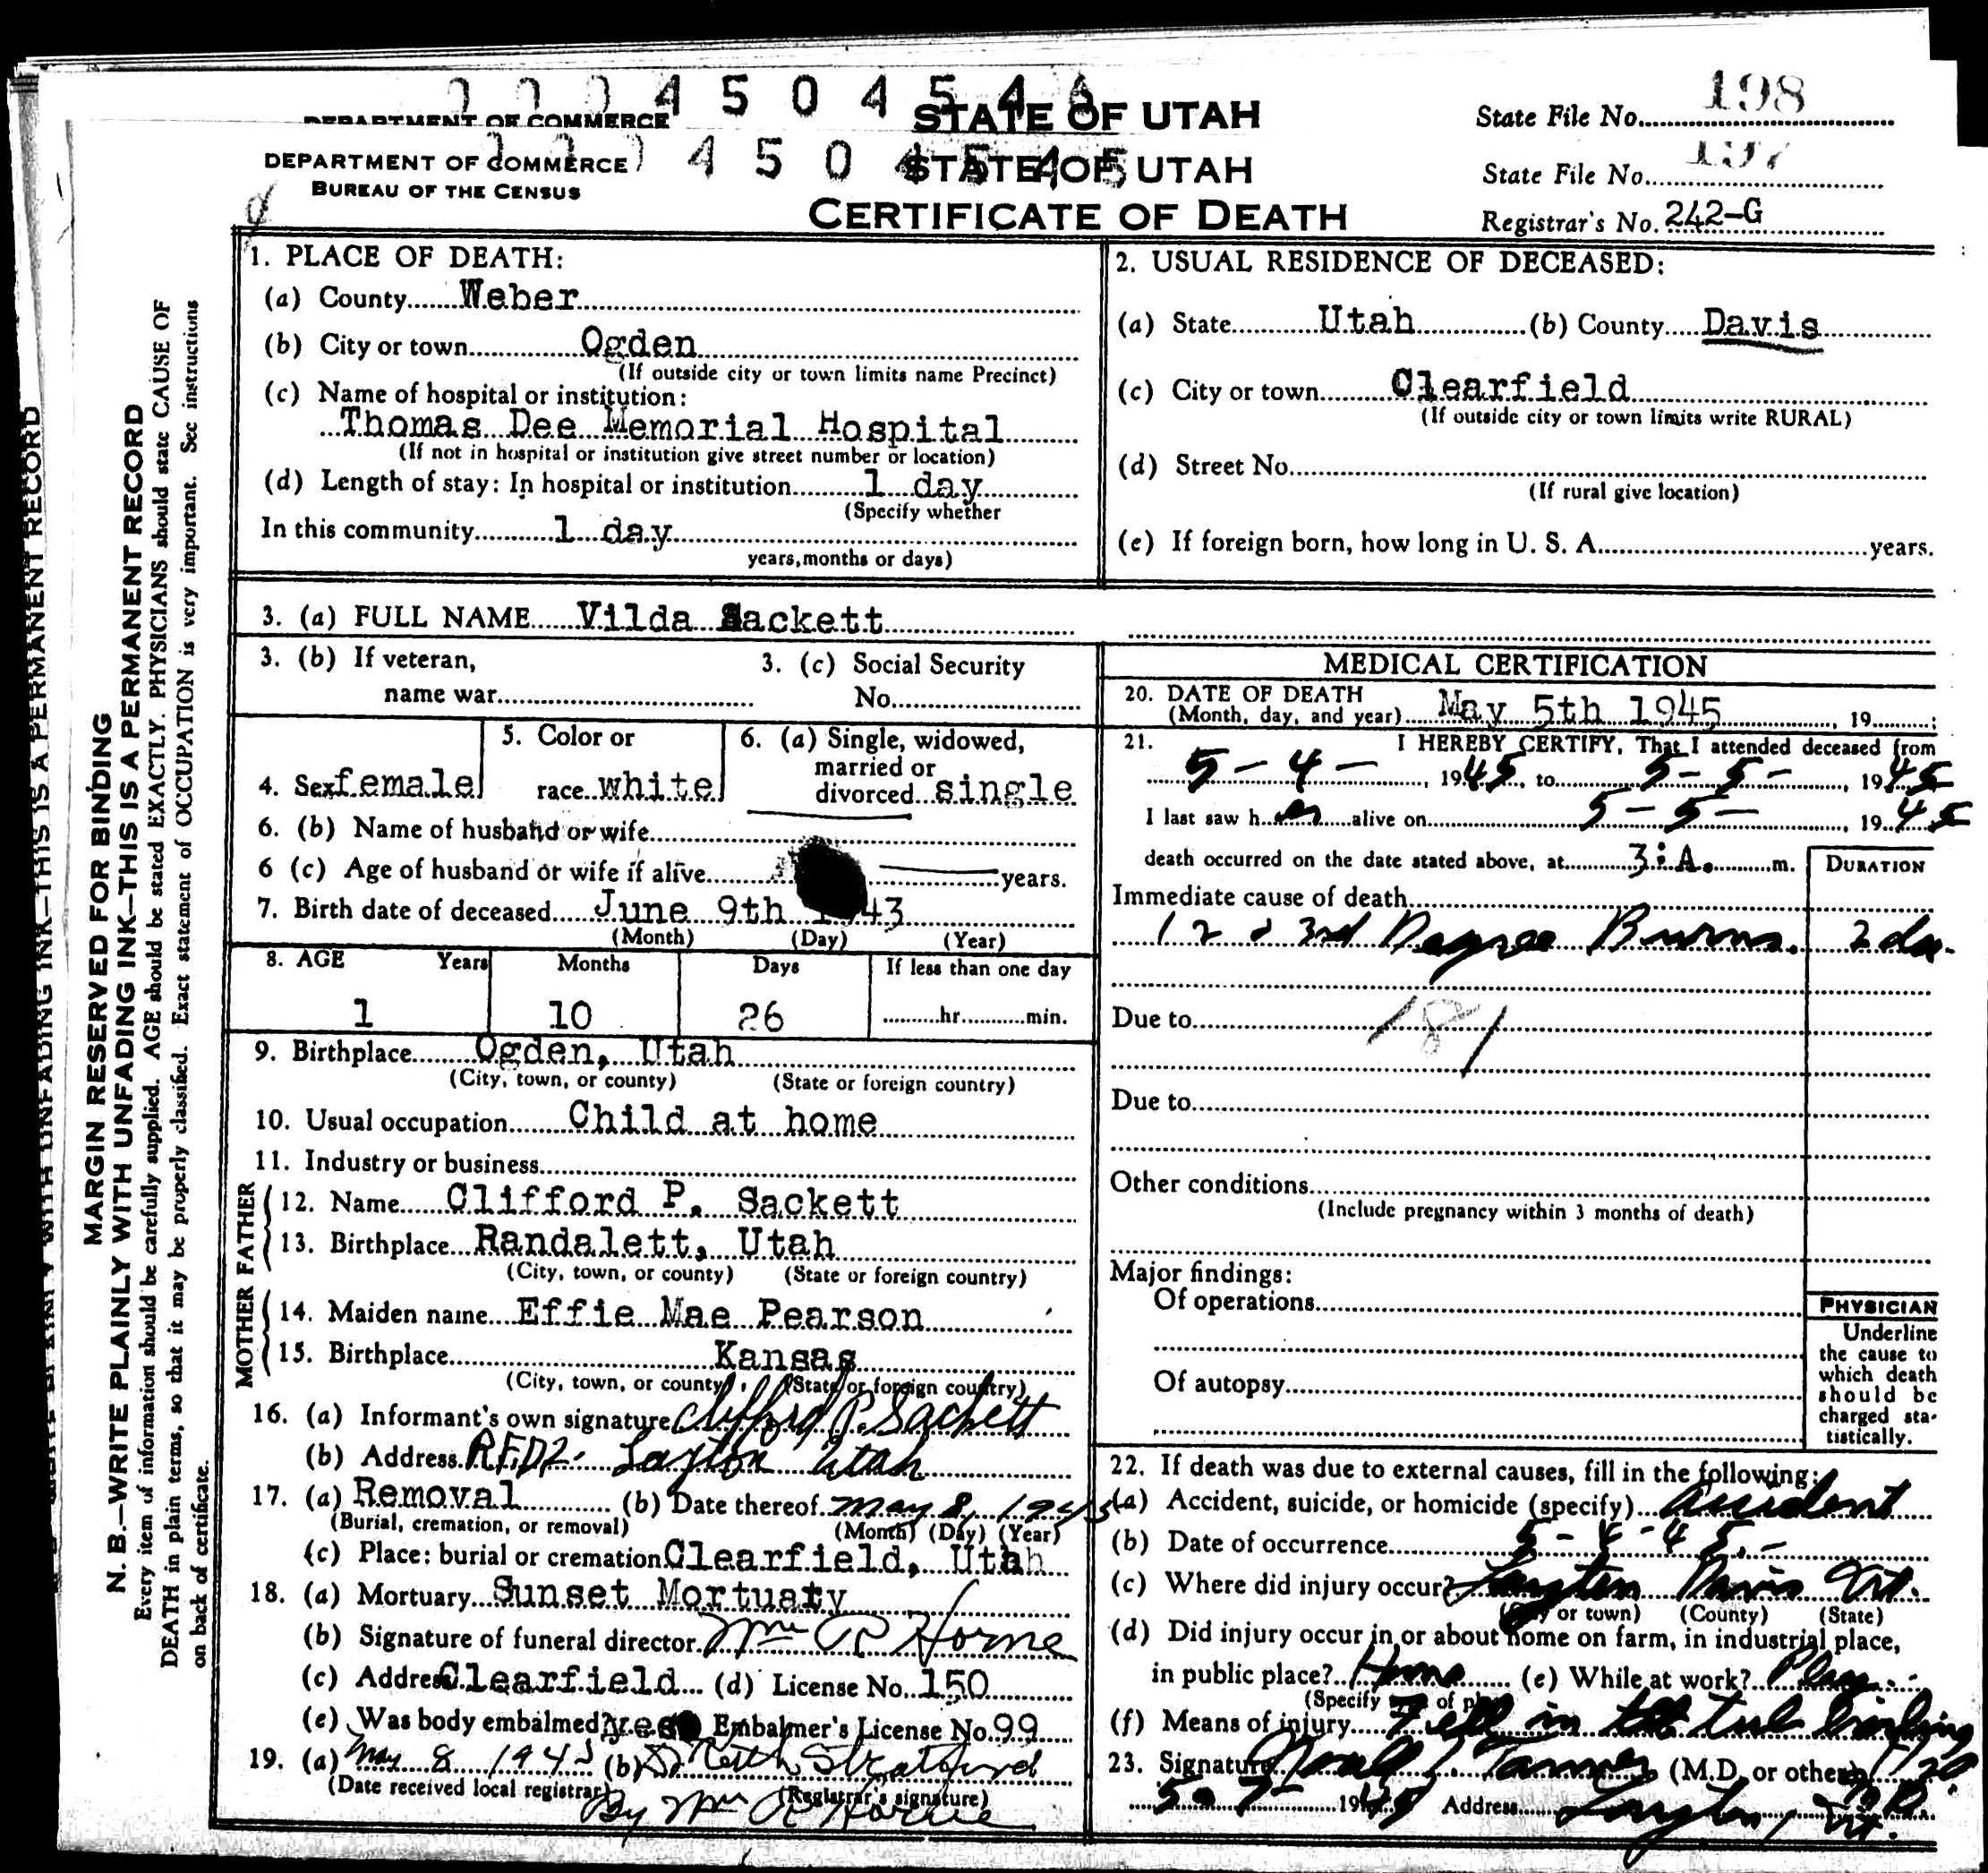 0004504546
DEPARTMENT OF COMMERCE STATE OF UTAH State File No. 198
DEPARTMENT OF COMMERCE STATE OF UTAH State File No. 197
BUREAU OF THE CENSUS
CERTIFICATE OF DEATH Registrar's No. 242-G
MARGIN RESERVED FOR BINDING
N. B.—WRITE PLAINLY WITH UNFADING INK—THIS IS A PERMANENT RECORD
Every item of information should be carefully supplied. AGE should be stated EXACTLY. PHYSICIANS should state CAUSE OF
DEATH in plain terms, so that it may be properly classified. Exact statement of OCCUPATION is very important. See instructions
on back of certificate.
1. PLACE OF DEATH:
(a) County Weber
(b) City or town Ogden
(If outside city or town limits name Precinct)
(c) Name of hospital or institution:
Thomas Dee Memorial Hospital
(If not in hospital or institution give street number or location)
(d) Length of stay: In hospital or institution 1 day
(Specify whether
In this community 1 day
years, months or days)
2. USUAL RESIDENCE OF DECEASED:
(a) State Utah (b) County Davis
(c) City or town Clearfield
(If outside city or town limits write RURAL)
(d) Street No.
(If rural give location)
(e) If foreign born, how long in U. S. A. years.
3. (a) FULL NAME Vilda Sackett
3. (b) If veteran, 3. (c) Social Security
name war No.
4. Sex female 5. Color or race white 6. (a) Single, widowed, married or divorced single
6. (b) Name of husband or wife
6 (c) Age of husband or wife if alive years.
7. Birth date of deceased June 9th 1943
(Month) (Day) (Year)
8. AGE Years Months Days If less than one day
1 10 26 hr. min.
9. Birthplace Ogden, Utah
(City, town, or county) (State or foreign country)
10. Usual occupation Child at home
11. Industry or business
FATHER
12. Name Clifford P. Sackett
13. Birthplace Randalett, Utah
(City, town, or county) (State or foreign country)
MOTHER
14. Maiden name Effie Mae Pearson
15. Birthplace Kansas
(City, town, or county) (State or foreign country)
16. (a) Informant's own signature Clifford P. Sackett
(b) Address RFD2. Layton Utah
17. (a) Removal (b) Date thereof May 8, 1945
(Burial, cremation, or removal) (Month) (Day) (Year)
(c) Place: burial or cremation Clearfield, Utah
18. (a) Mortuary Sunset Mortuaty
(b) Signature of funeral director Wm R Horne
(c) Address Clearfield (d) License No. 150
(e) Was body embalmed yes Embalmer's License No. 99
19. (a) May 8 1945 (b) Stratford
(Date received local registrar) (Registrar's signature)
By Wm R Horne
MEDICAL CERTIFICATION
20. DATE OF DEATH
(Month, day, and year) May 5th 1945, 19
21. I HEREBY CERTIFY, That I attended deceased from
5-4-, 1945, to 5-5-, 1945
I last saw her alive on 5-5-, 1945
death occurred on the date stated above, at 3:A. m. DURATION
Immediate cause of death
1 2 & 3rd Degree Burns. 2 da.
Due to 181
Due to
Other conditions
(Include pregnancy within 3 months of death)
Major findings:
Of operations
Of autopsy
PHYSICIAN
Underline
the cause to
which death
should be
charged sta-
tistically.
22. If death was due to external causes, fill in the following:
(a) Accident, suicide, or homicide (specify) Accident
(b) Date of occurrence 5-4-45.-
(c) Where did injury occur? Layton Davis Ut.
(City or town) (County) (State)
(d) Did injury occur in or about home on farm, in industrial place,
in public place? Home (e) While at work? Play
(Specify of place)
(f) Means of injury Fell in tub boiling
H20
23. Signature Noall Tanner (M.D. or other) M.D.
5-7-1945 Address Layton, Ut.